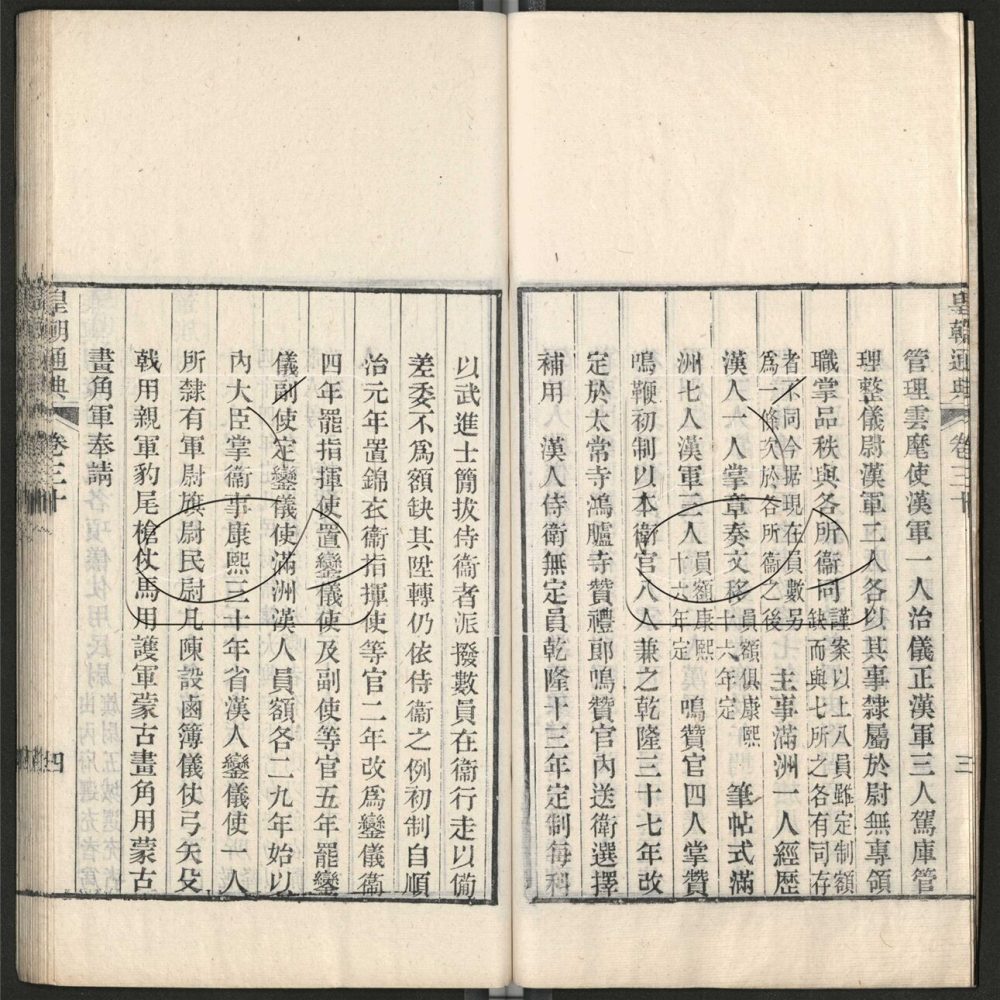 皇朝通典 卷三十 三
管理雲麾使漢軍一人治儀正漢軍三人駕庫管
理整儀尉漢軍二人各以其事隸屬於尉無專領
職掌品秩與各所衞同謹案以上八員雖定制額
缺而與七所之各有司存
者不同今据現在員數另
爲一條次於各所衞之後
主事滿洲一人經歷
漢人一人掌章奏文移員額俱康熙
十六年定
筆帖式滿
洲七人漢軍三人員額康熙
十六年定
鳴贊官四人掌贊
鳴鞭初制以本衞官八人兼之乾隆三十七年改
定於太常寺鴻臚寺贊禮郎鳴贊官內送衞選擇
補用 漢人侍衞無定員乾隆十三年定制每科
以武進士簡拔侍衞者派撥數員在衞行走以備
差委不爲額缺其陞轉仍依侍衞之例初制自順
治元年置錦衣衞指揮使等官二年改爲鑾儀衞
四年罷指揮使置鑾儀使及副使等官五年罷鑾
儀副使定鑾儀使滿洲漢人員額各二九年始以
內大臣掌衞事康熙三十年省漢人鑾儀使一人
所隸有軍尉旗尉民尉凡陳設鹵簿儀仗弓矢殳
戟用親軍豹尾槍仗馬用護軍蒙古畫角用蒙古
畫角軍奉請
皇朝通典 卷三十 四